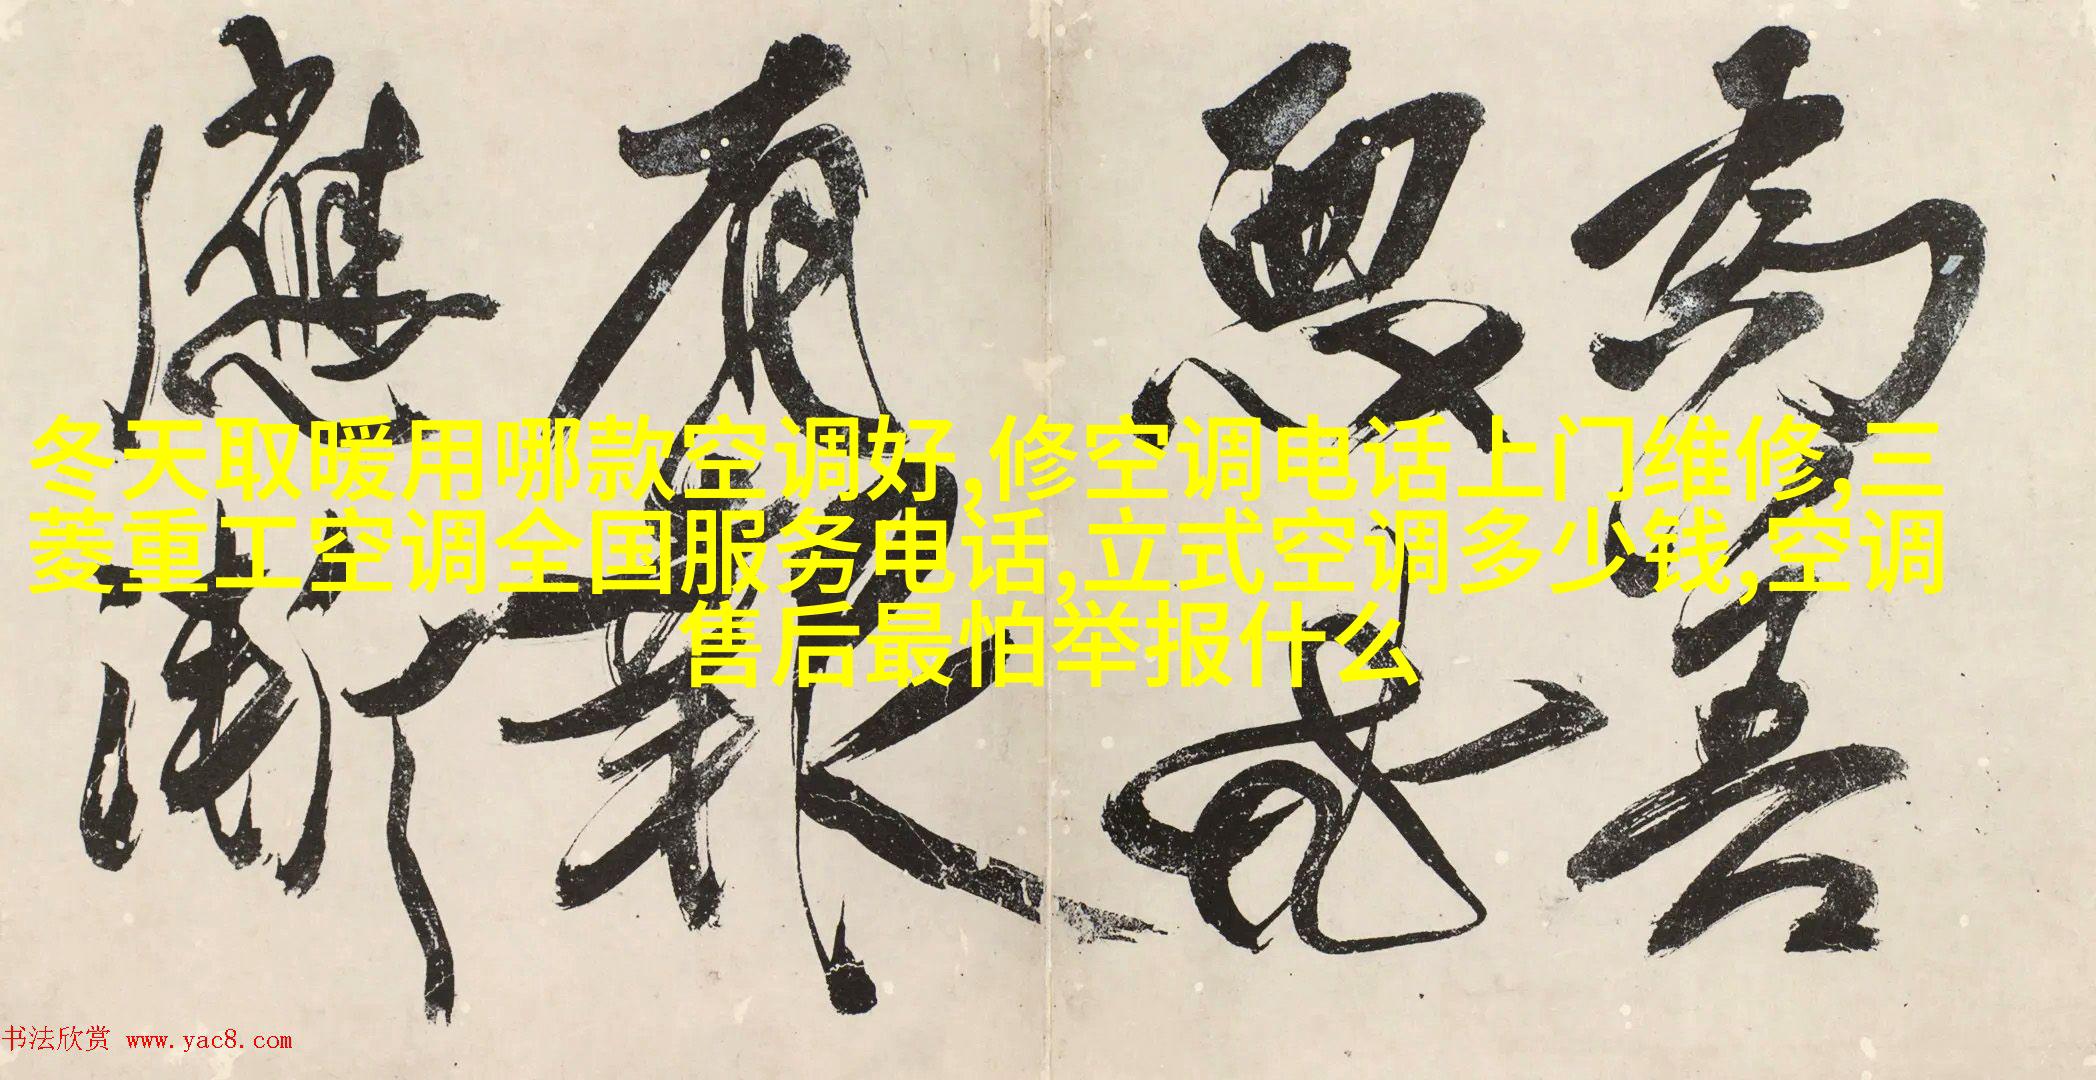 為善
惡或
有報
應漸
冬天取暖用哪款空调好,修空调电话上门维修,三
菱重工空调全国服务电话,立式空调多少钱,空调
售后最怕举报什么
书法欣赏 www.yac8.com